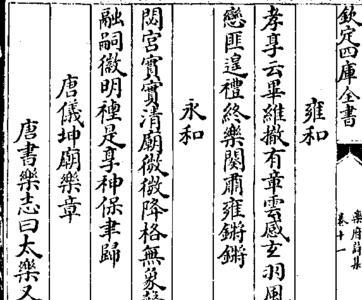 欽定四庫全書
樂府詩集
卷十一
雍和
孝享云畢維撤有章雲感玄羽風
戀匪遑禮終樂闋肅雍鏘鏘
永和
閟宮實實清廟微微降格無象
融嗣徽明禋是享神保聿歸
唐儀坤廟樂章
唐書樂志曰太樂又